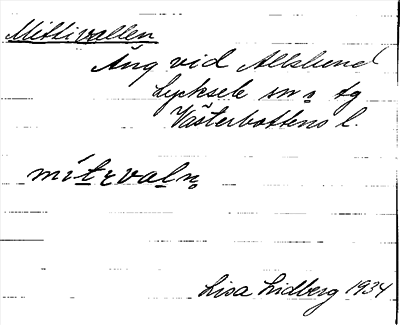 Mittivallen
Äng vid Allslund
Lycksele sn o tg
Västerbottens l.
mítɩvaln̥
Lisa Lidberg 1934